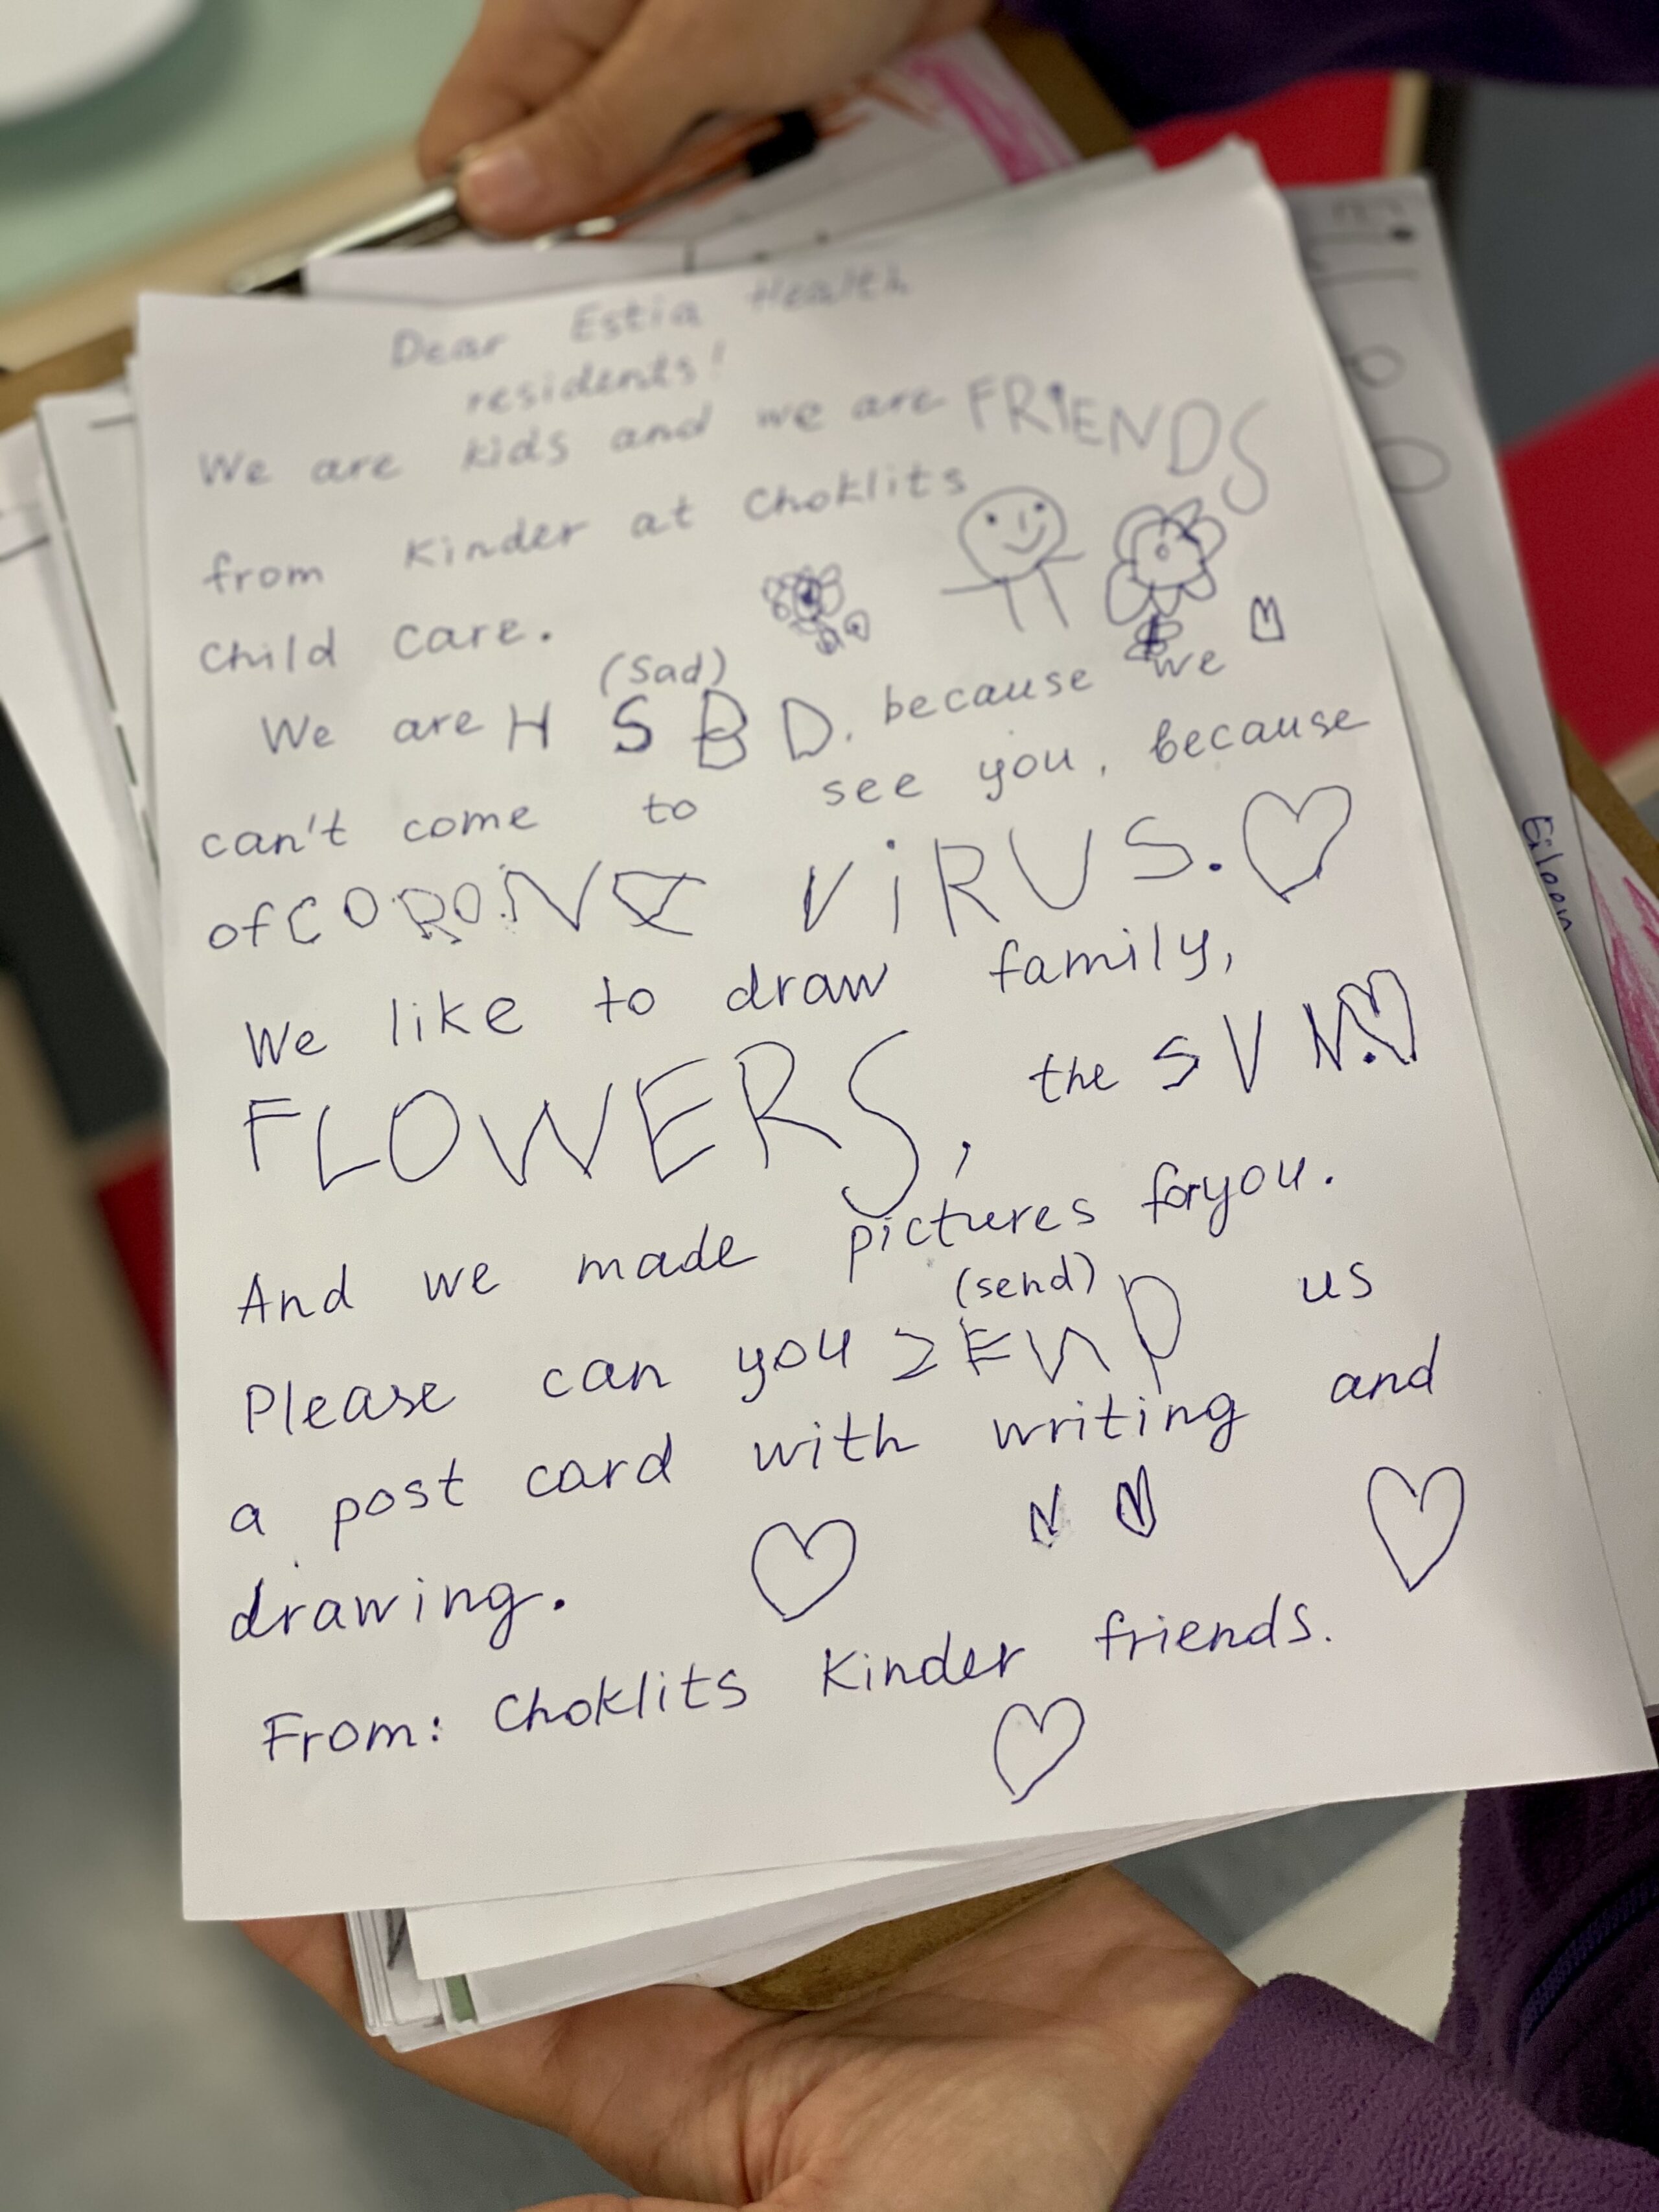 Dear Estia Health
residents!
We are kids and we are FRIENDS
from Kinder at Choklits
Child Care.
(Sad)
We are H S B D. because we
can't come to see you, because
of CORONA ViRUS.
We like to draw family,
FLOWERS, the SVN.
And we made pictures for you.
(send)
Please can you SEND us
a post card with writing and
drawing.
From: Choklits Kinder friends.
Eileen